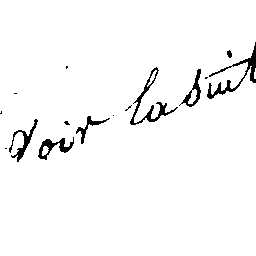 Voir la suit